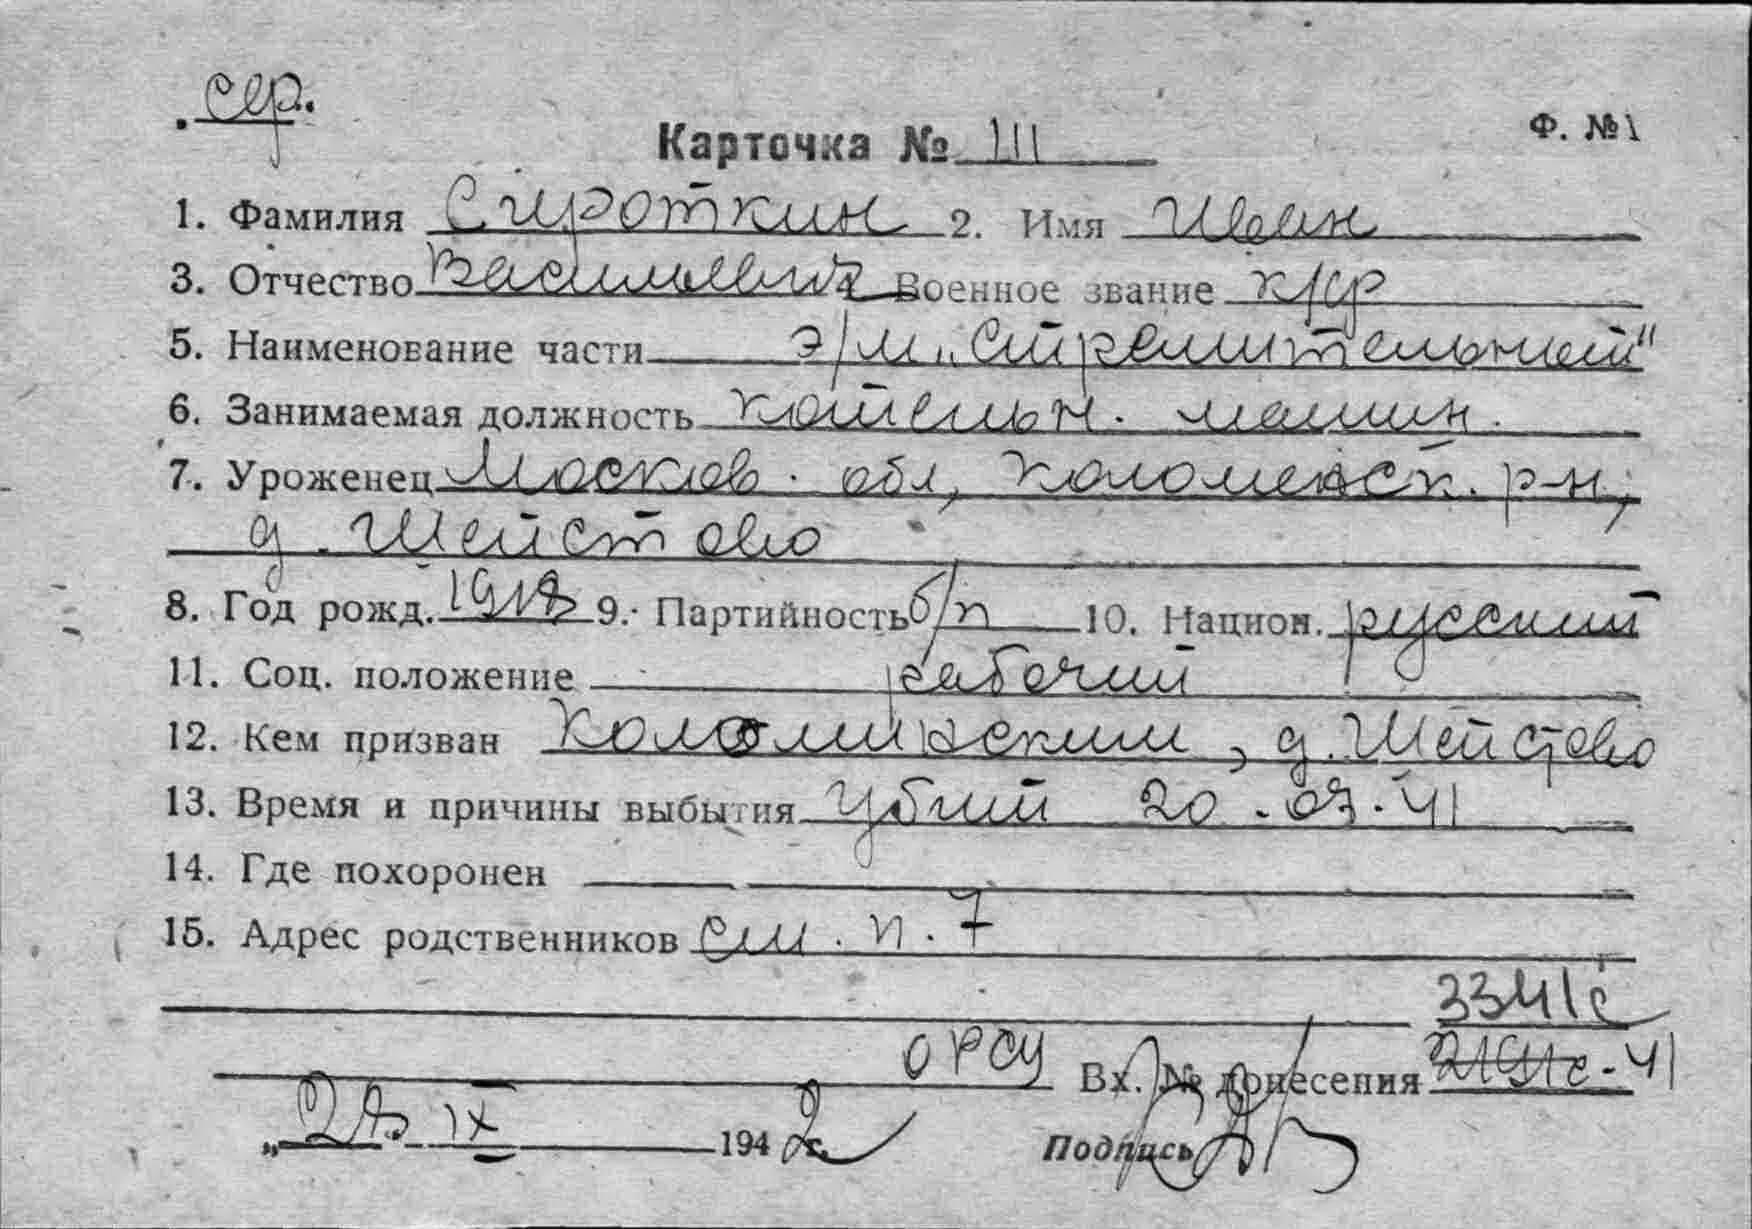 сер.
Карточка № 111
Ф. №1
1. Фамилия Сироткин 2. Имя Иван
3. Отчество Васильевич Военное звание к/кр
5. Наименование части э/м „Стремительный"
6. Занимаемая должность котельн. машин.
7. Уроженец Москов. обл, Коломенск. р-н,
д. Шейстово
8. Год рожд. 1918 9. Партийность б/п 10. Национ. русский
11. Соц. положение рабочий
12. Кем призван Коломинским, д. Шейстово
13. Время и причины выбытия Убит 20.07.41
14. Где похоронен
15. Адрес родственников см. п. 7
3341с
ОРСУ Вх. № донесения 2191с-41
„28 IX 1942 г. Подпись